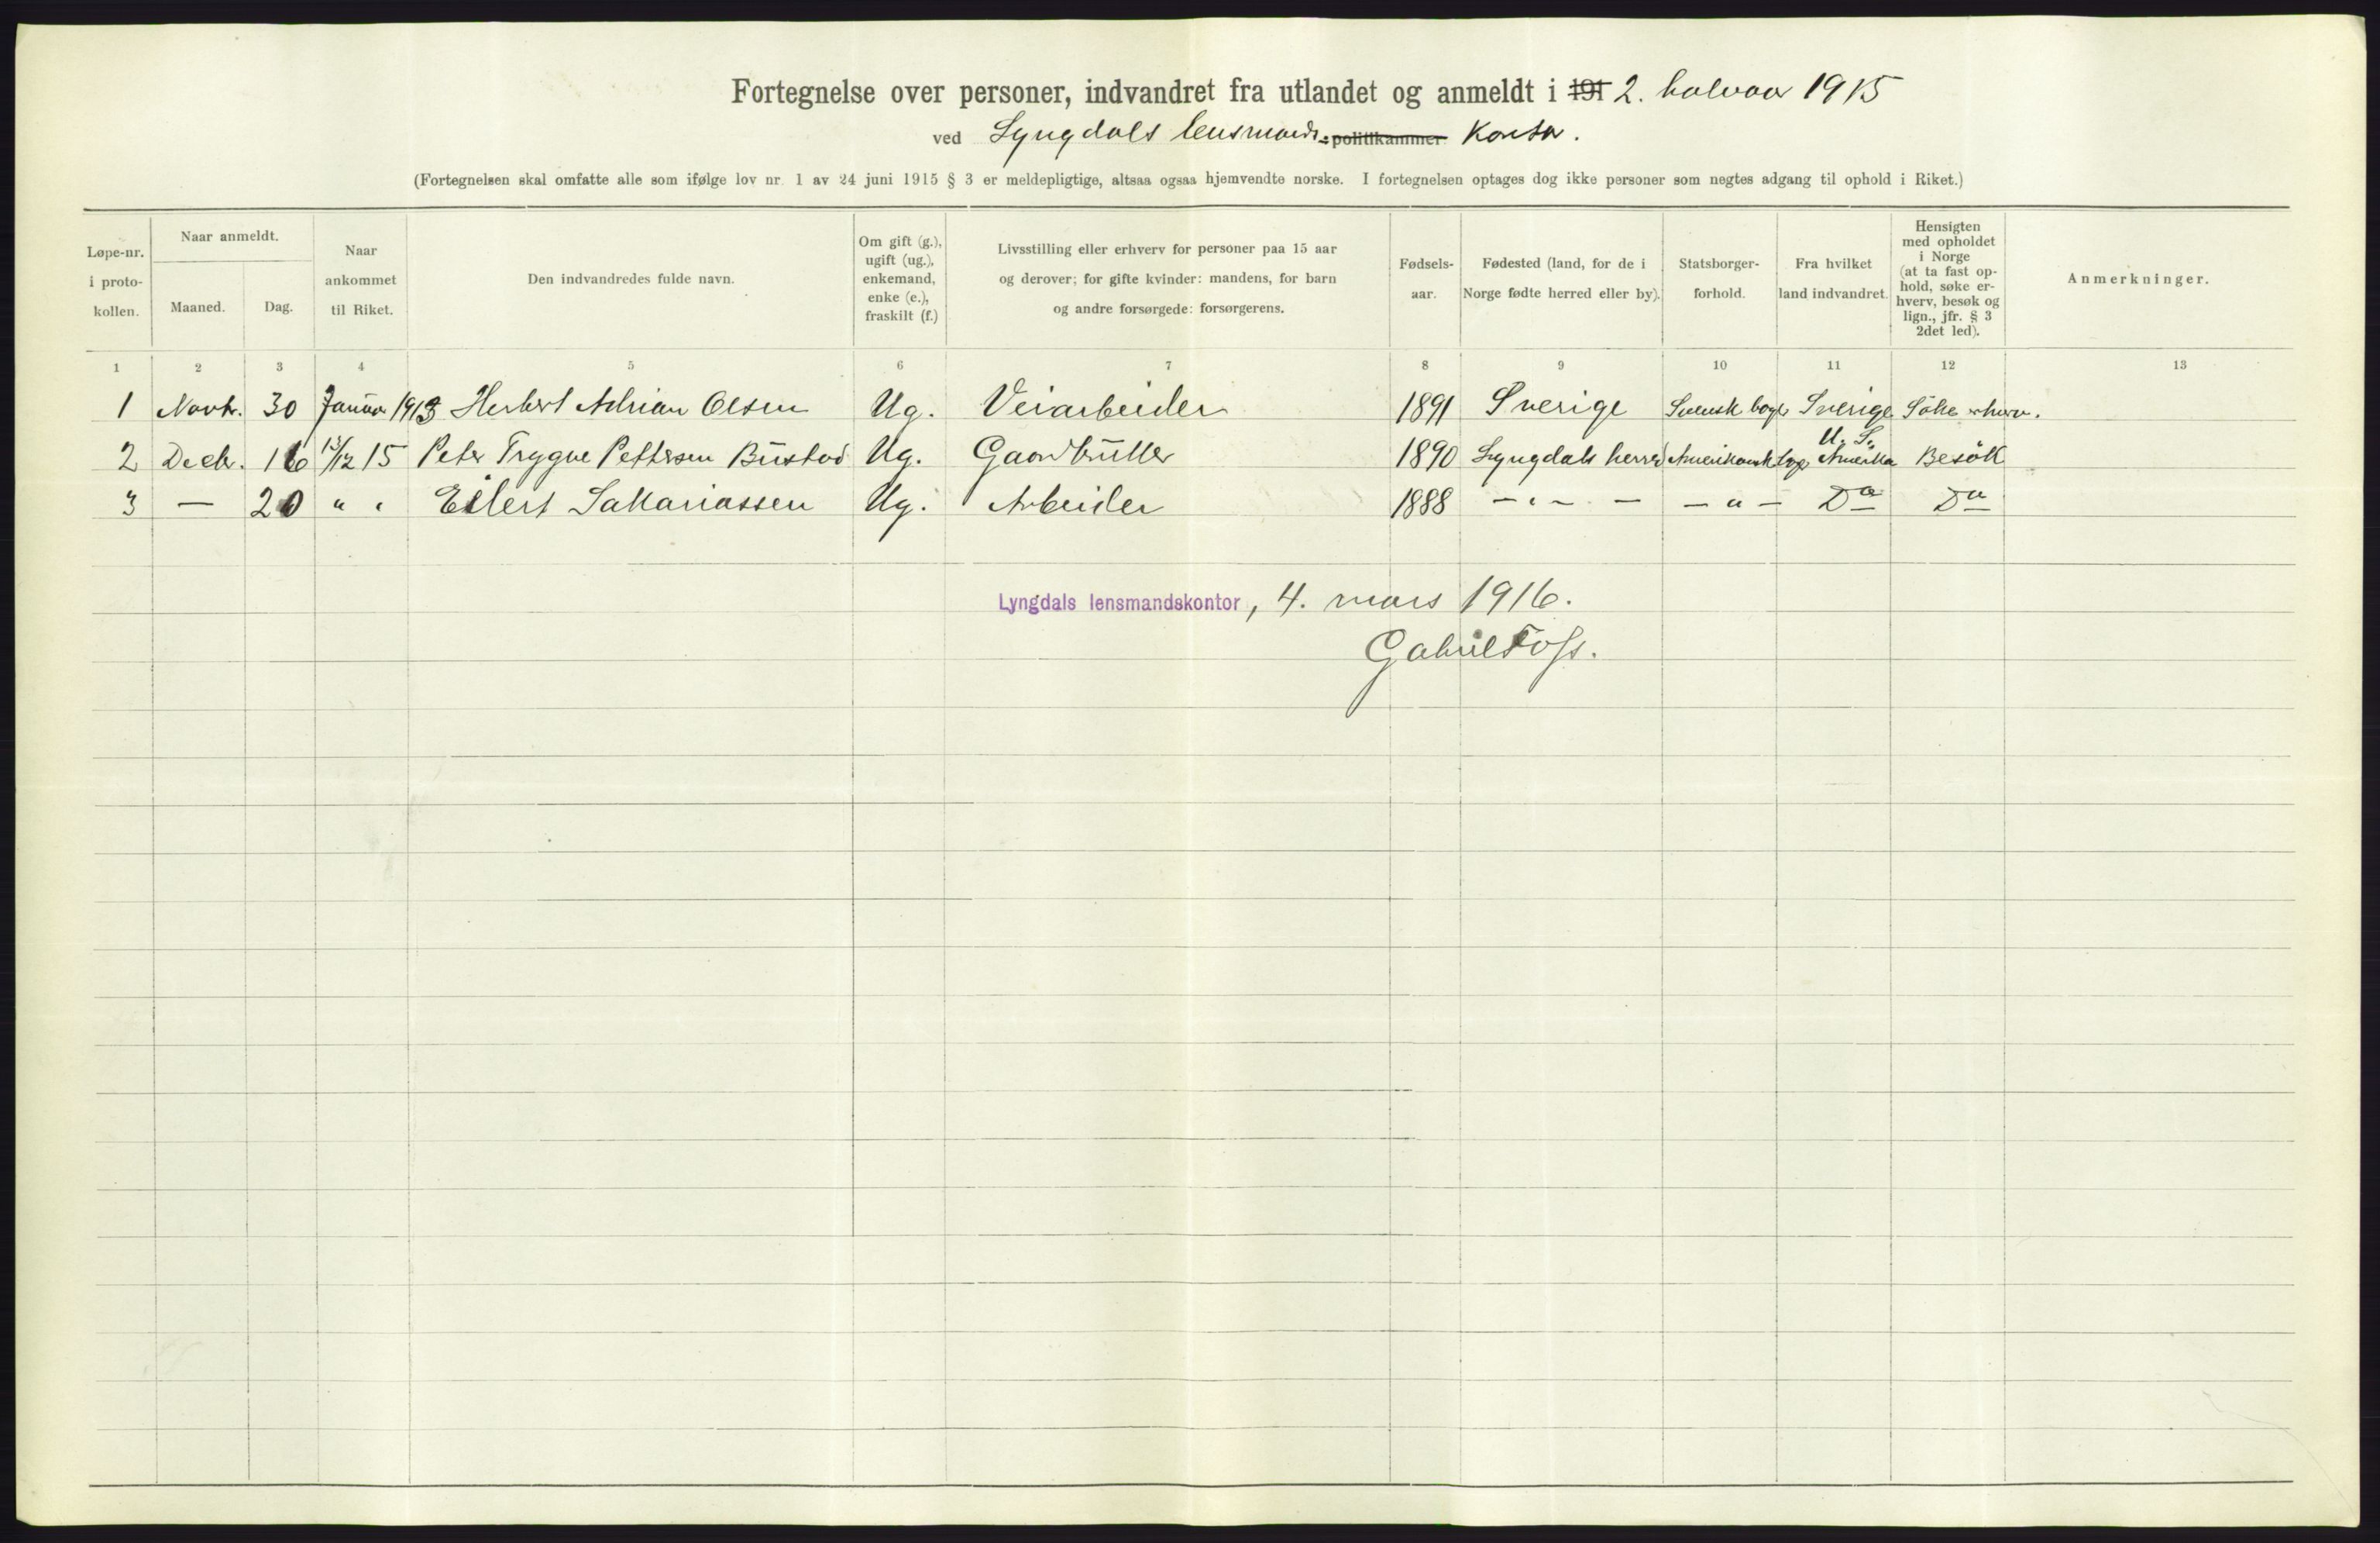 Fortegnelse over personer, indvandret fra utlandet og anmeldt i 191 2. halvaar 1915
ved Lyngdals lensmands-politikammer Kontor.
(Fortegnelsen skal omfatte alle som ifølge lov nr. 1 av 24 juni 1915 § 3 er meldepligtige, altsaa ogsaa hjemvendte norske. I fortegnelsen optages dog ikke personer som negtes adgang til ophold i Riket.)
Løpe-nr. i proto-kollen.
Naar anmeldt.
Maaned.
Dag.
Naar ankommet til Riket.
Den indvandredes fulde navn.
Om gift (g.), ugift (ug.), enkemand, enke (e.), fraskilt (f.)
Livsstilling eller erhverv for personer paa 15 aar og derover; for gifte kvinder: mandens, for barn og andre forsørgede: forsørgerens.
Fødsels-aar.
Fødested (land, for de i Norge fødte herred eller by).
Statsborger-forhold.
Fra hvilket land indvandret.
Hensigten med opholdet i Norge (at ta fast op-hold, søke er-hverv, besøk og lign., jfr. § 3 2det led).
Anmerkninger.
1 2 3 4 5 6 7 8 9 10 11 12 13
1 Novbr. 30 Januar 1913 Herbert Adrian Olsen Ug. Veiarbeider 1891 Sverige Svensk borger Sverige Söke erhverv.
2 Decbr. 16 13/12 15 Peter Trygve Pettersen Büstad Ug. Gaardbruker 1890 Lyngdals herred Amerikansk borger U. S. Amerika Besök
3 — 20 " " Eilert Sakariassen Ug. Arbeider 1888 - " - - - " - Do Do
Lyngdals lensmandskontor, 4. mars 1916.
Gabriel Foss.